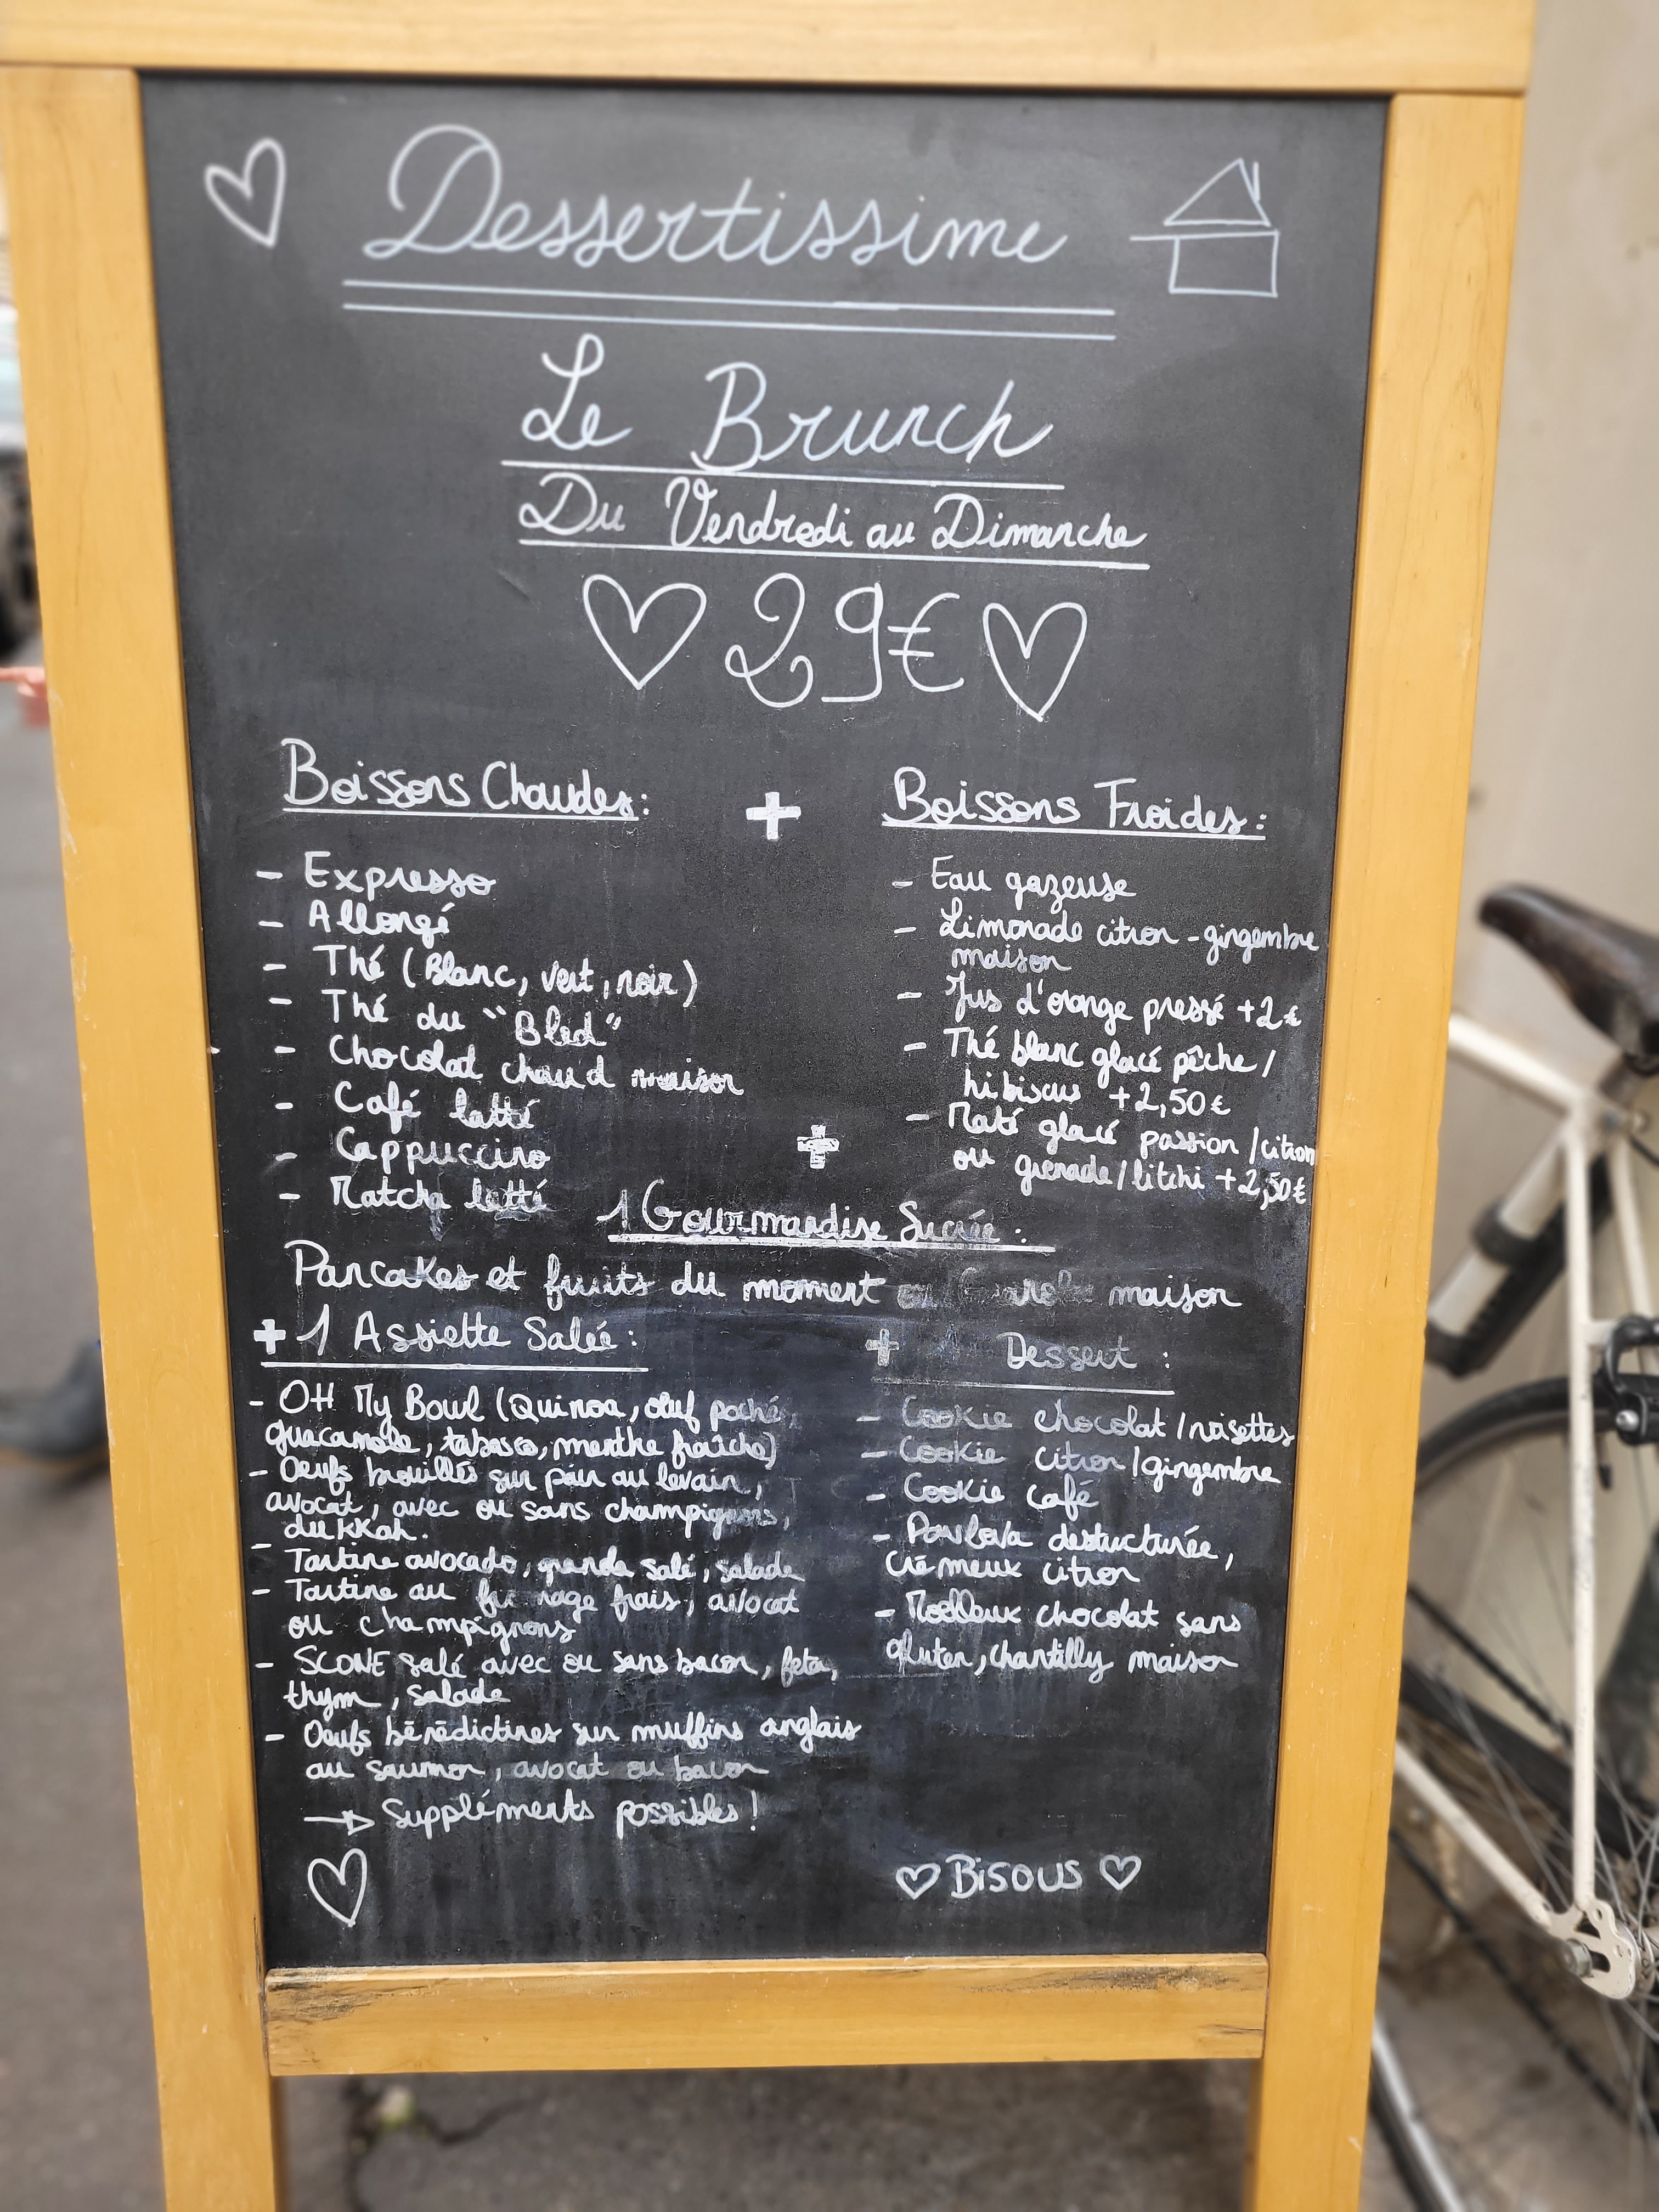 Dessertissime
Le Brunch
Du Vendredi au Dimanche
29€
Boissons Chaudes :
- Expresso
- Allongé
- Thé (Blanc, vert, noir)
- Thé du "Bled"
- Chocolat chaud maison
- Café latté
- Cappuccino
- Matcha latté
+
Boissons Froides :
- Eau gazeuse
- Limonade citron-gingembre
maison
- Jus d'orange pressé +2€
- Thé blanc glacé pêche/
hibiscus +2,50€
- Maté glacé passion/citron
ou grenade/litchi +2,50€
+
1 Gourmandise Sucrée :
Pancakes et fruits du moment ou maison
+ 1 Assiette Salée :
- OH My Bowl (Quinoa, œuf poché,
guacamole, tabasco, menthe fraîche)
- Oeufs brouillés sur pain au levain,
avocat, avec ou sans champignons,
dukkah.
- Tartine avocado, granola salé, salade
- Tartine au fromage frais, avocat
ou champignons
- SCONE salé avec ou sans bacon, feta,
thym, salade
- Oeufs bénédictines sur muffins anglais
au saumon, avocat ou bacon
→ Suppléments possibles !
+ 1 Dessert :
- Cookie chocolat/noisettes
- Cookie citron/gingembre
- Cookie café
- Pavlova destucturée,
crémeux citron
- Moelleux chocolat sans
gluten, chantilly maison
♡ Bisous ♡